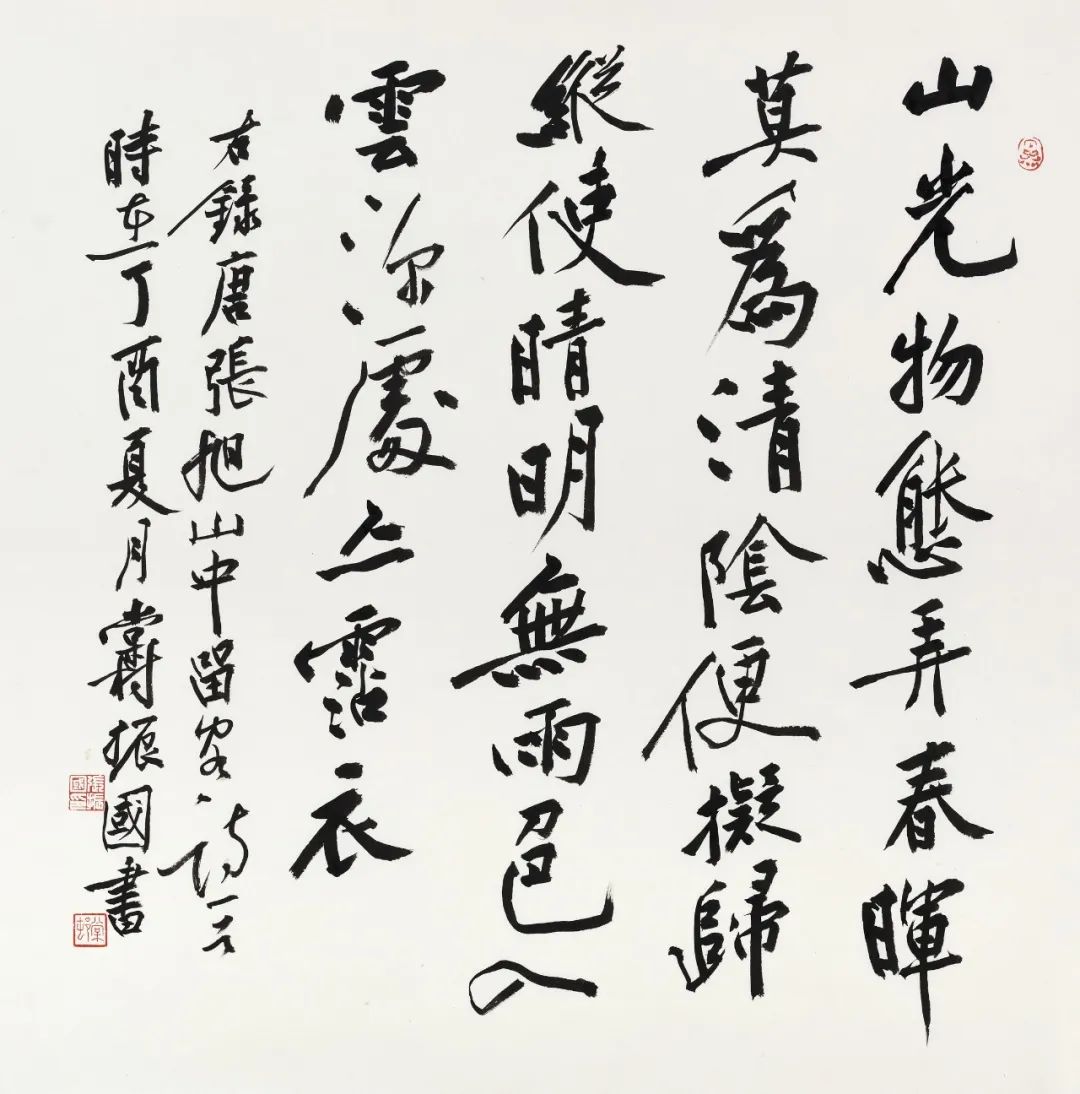 山光物態弄春暉
莫為清陰便擬歸
縱使晴明無雨色入
雲深處亦霑衣
右錄唐張旭山中留客詩一首
時在丁酉夏月棠村振國書
張振國印
棠村